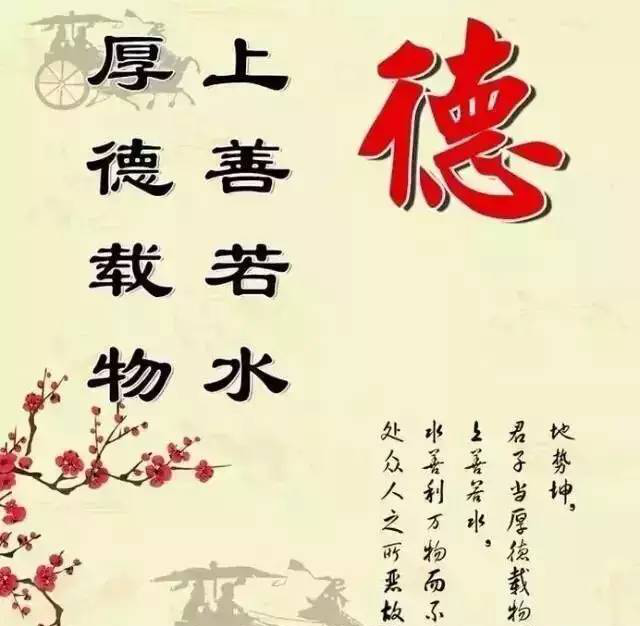 德
上善若水
厚德载物
地势坤，
君子当厚德载物
上善若水，
水善利万物而不
处众人之所恶故